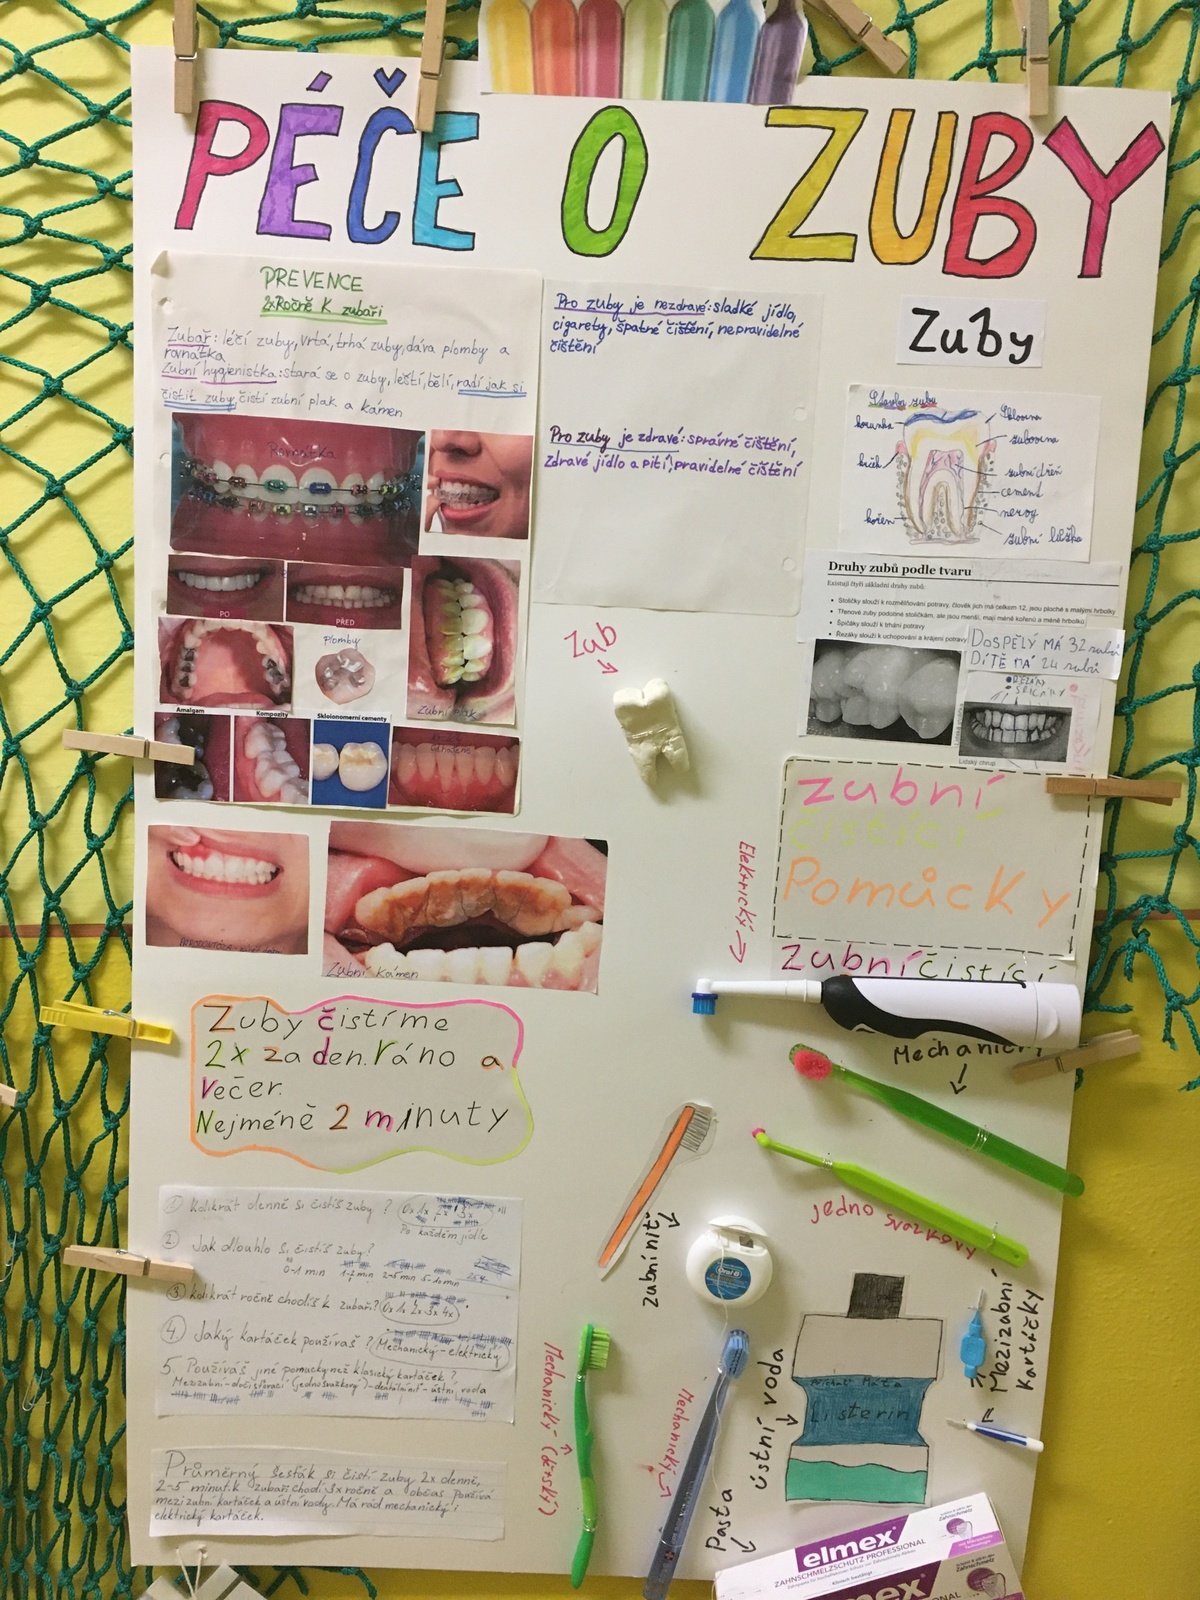 PÉČE O ZUBY
PREVENCE
2x Ročně K zubaři
Zubař: léčí zuby, vrtá, trhá zuby, dává plomby a
rovnátka
Zubní hygienistka: stará se o zuby, leští, bělí, radí jak si
čistit zuby, čistí zubní plak a kámen
Rovnátka
PO
PŘED
Plomby
Zubní plak
Amalgam
Kompozity
Skloionomerní cementy
Zubní kámen
Pro zuby je nezdravé: sladké jídlo,
cigarety, špatné čištění, nepravidelné
čištění
Pro zuby je zdravé: správné čištění,
Zdravé jídlo a pití, pravidelné čištění
Zuby
Stavba zubu
korunka
krček
kořen
sklovina
zubovina
zubní dřeň
cement
nervy
zubní lůžko
Druhy zubů podle tvaru
Existují čtyři základní druhy zubů:
Stoličky slouží k rozmělňování potravy, člověk jich má celkem 12, jsou ploché s malými hrbolky
Třenové zuby podobné stoličkám, ale jsou menší, mají méně kořenů a méně hrbolků
Špičáky slouží k trhání potravy
Řezáky slouží k uchopování a krájení potravy
DOSPĚLÝ MÁ 32 zubů
DÍTĚ MÁ 24 zubů
ŘEZÁKY
ŠPIČÁKY
Lidský chrup
Zub
zubní
čistící
Pomůcky
zubní čistící
Elektrický
Mechanický
jedno svazkový
Zuby čistíme
2x za den. Ráno a
večer.
Nejméně 2 minuty
zubní niť
Oral B
Mezizubní
kartáčky
① Kolikrát denně si čistíš zuby? 0x 1x 2x 3x
Po každém jídle
2. Jak dlouhlo si čistíš zuby?
0-1 min 1-2 min 2-5 min 5-10 min
③ kolikrát ročně chodíš k zubaři? 0x 1x 2x 3x 4x
④ Jaký kartáček používáš? Mechanický - elektrický
5. Používáš jiné pomucky než klasický kartáček?
Mezizubní - (jednosvazkový) - dentální niť - ústní voda
Průměrný šesťák si čistí zuby 2x denně,
2-5 minut. k zubaři chodí 3x ročně a občas používá
mezizubní kartáček a ústní vody. Má rád mechanický i
elektrický kartáček.
Mechanický (dětský)
Mechanický
ústní voda
Listerin
Pasta
elmex
ZAHNSCHMELZSCHUTZ PROFESSIONAL
Zahnschmelz